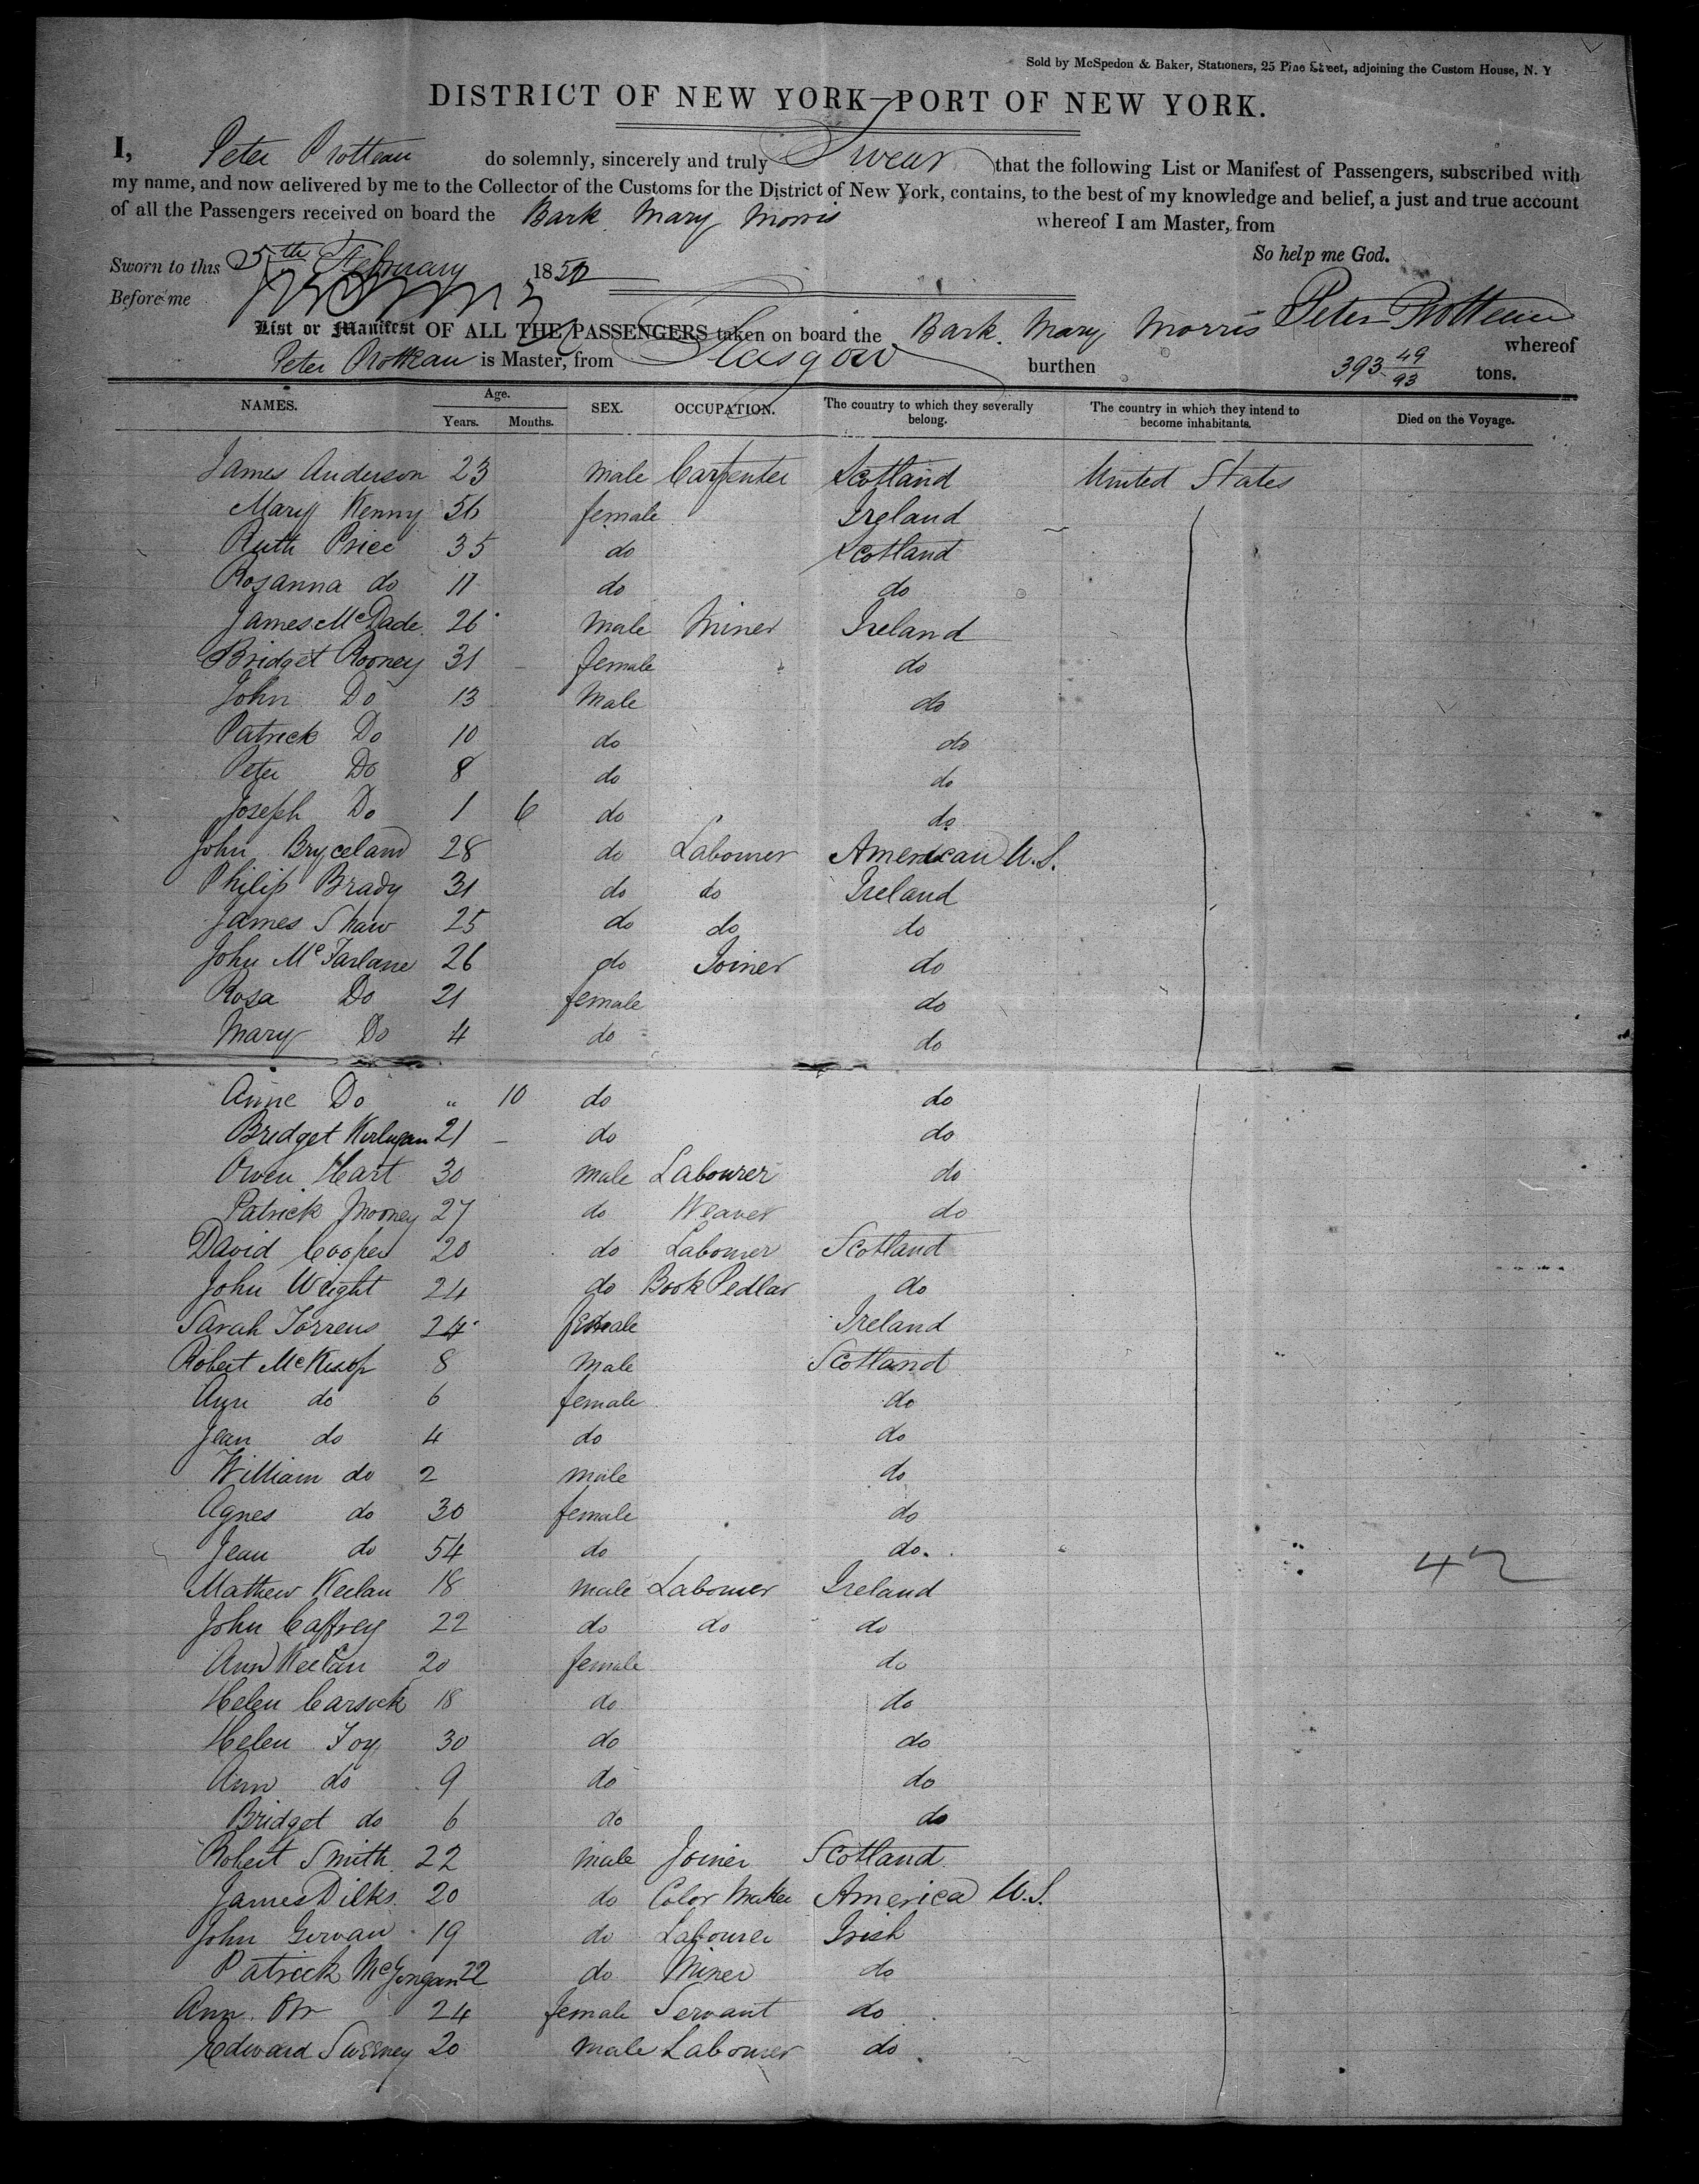 Sold by McSpedon & Baker, Stationers, 25 Pine Street, adjoining the Custom House, N. Y
DISTRICT OF NEW YORK—PORT OF NEW YORK.
I, Peter do solemnly, sincerely and truly Swear that the following List or Manifest of Passengers, subscribed with
my name, and now delivered by me to the Collector of the Customs for the District of New York, contains, to the best of my knowledge and belief, a just and true account
of all the Passengers received on board the Bark Mary Morris whereof I am Master, from
So help me God.
Sworn to this 25th February 1852
Before me
Peter
List or Manifest OF ALL THE PASSENGERS taken on board the Bark. Mary Morris whereof
Peter is Master, from Glasgow burthen 393 49/93 tons.
NAMES. Age. Years. Months. SEX. OCCUPATION. The country to which they severally belong. The country in which they intend to become inhabitants. Died on the Voyage.
James Anderson 23 male Carpenter Scotland United States
Mary Kenny 56 female Ireland
Ruth Price 35 do Scotland
Rosanna do 11 do do
James McDade 26 Male Miner Ireland
Bridget Rooney 31 female do
John Do 13 Male do
Patrick Do 10 do do
Peter Do 8 do do
Joseph Do 1 6 do do
John Bryceland 28 do Labourer American U.S.
Philip Brady 31 do do Ireland
James Shaw 25 do do do
John McFarlane 26 do Joiner do
Rosa Do 21 female do
Mary Do 4 do do
Anne Do " 10 do do
Bridget 21 do do
Owen Hart 30 male Labourer do
Patrick Mooney 27 do Weaver do
David Cooper 20 do Labourer Scotland
John Wright 24 do Book Pedlar do
Sarah Torrens 24 female Ireland
Robert McKisop 8 Male Scotland
Ann do 6 female do
Jean do 4 do do
William do 2 male do
Agnes do 30 female do
Jean do 54 do do.
42
Mathew Keelan 18 male Labourer Ireland
John Caffrey 22 do do do
Ann Keelan 20 female do
Helen 18 do do
Helen Foy 30 do do
Ann do 9 do do
Bridget do 6 do do
Robert Smith 22 male Joiner Scotland
James Dilks 20 do Color Maker America U.S.
John Girvan 19 do Labourer Irish
Patrick McGongan 22 do Miner do
Ann Orr 24 female Servant do
Edward Sweeney 20 male Labourer do